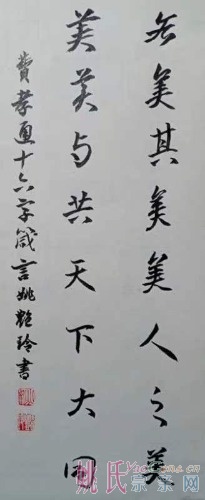 各美其美美人之美
美美与共天下大同
费孝通十六字箴言姚艳玲书
姚氏宗亲网